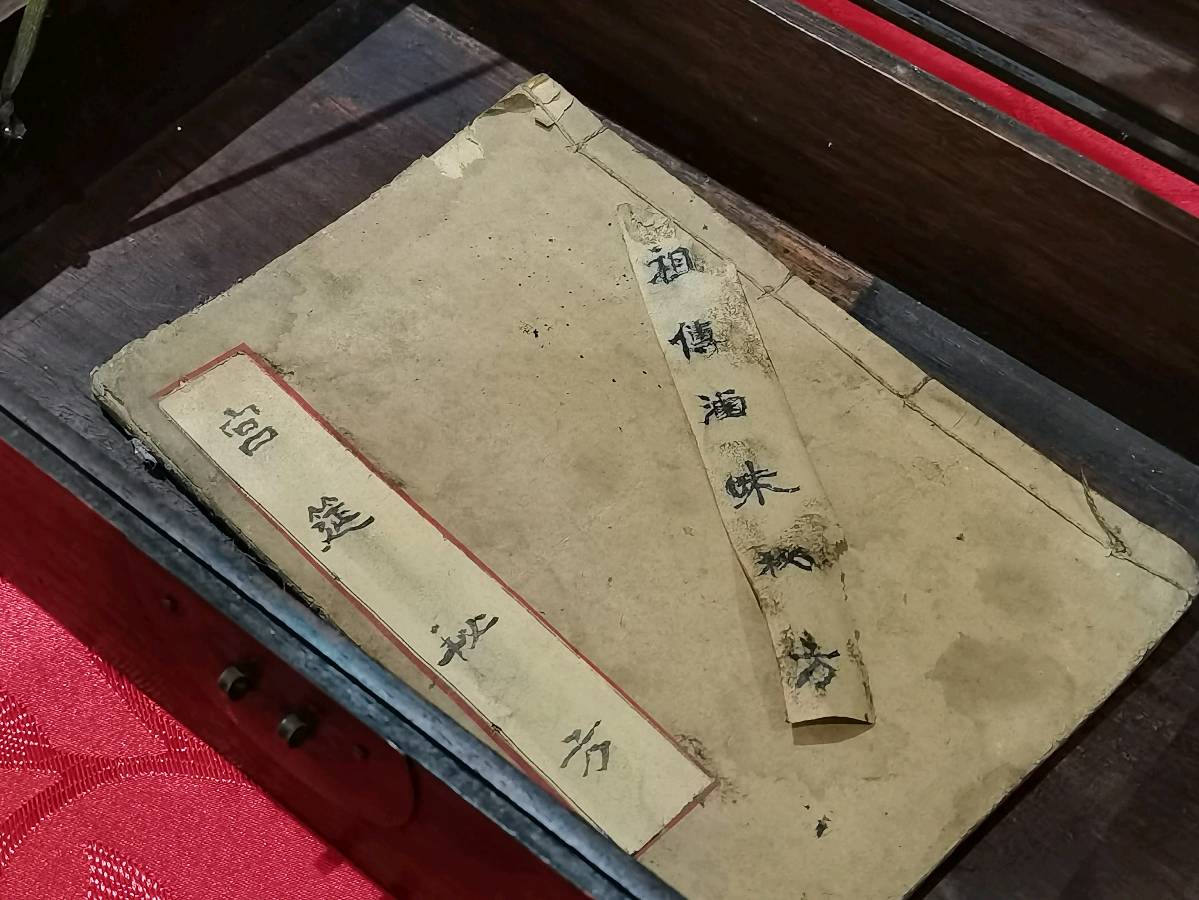 祖傳滷味秘方
宮筵秘方